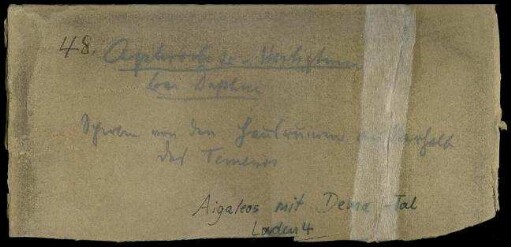 48. Aphrodite-Heiligtum
bei Daphni
Scherben von den Hausruinen außerhalb
des Temenos
Aigaleos mit Dema-Tal
Laden 4